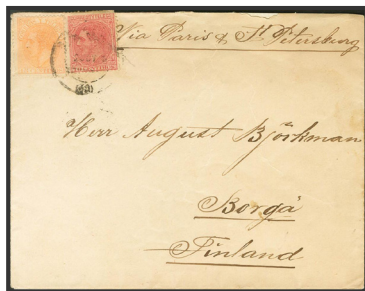 Via Paris & St Petersburg
Herr August Björkman
Borgå
Finland